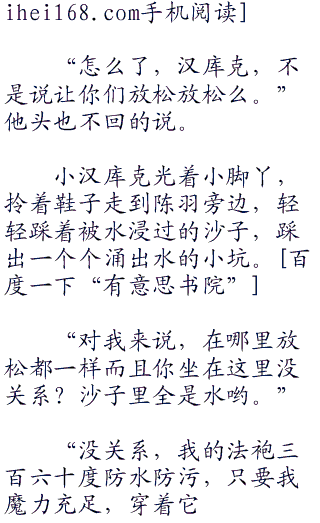 ihei168.com手机阅读]
“怎么了，汉库克，不
是说让你们放松放松么。”
他头也不回的说。
小汉库克光着小脚丫，
拎着鞋子走到陈羽旁边，轻
轻踩着被水浸过的沙子，踩
出一个个涌出水的小坑。[百
度一下“有意思书院”]
“对我来说，在哪里放
松都一样而且你坐在这里没
关系？沙子里全是水哟。”
“没关系，我的法袍三
百六十度防水防污，只要我
魔力充足，穿着它